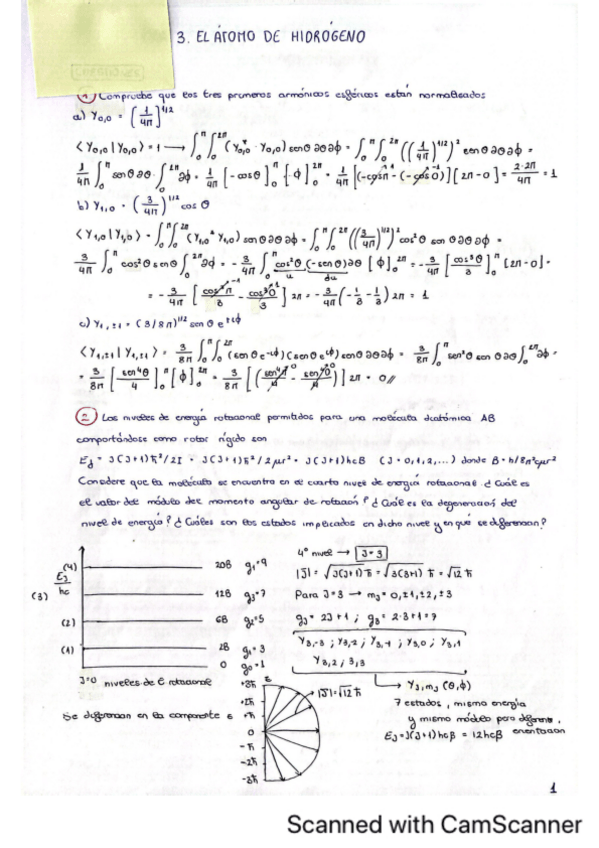 3. EL ÁTOMO DE HIDRÓGENO
1) Compruebe que los tres primeros armónicos esféricos están normalizados
a) Y₀,₀ = (1/4π)^1/2
⟨Y₀,₀|Y₀,₀⟩ = 1 → ∫₀^π ∫₀^2π (Y₀,₀* · Y₀,₀) senθ ∂θ ∂ϕ = ∫₀^π ∫₀^2π ((1/4π)^1/2)² senθ ∂θ ∂ϕ =
1/4π ∫₀^π senθ ∂θ · ∫₀^2π ∂ϕ = 1/4π [-cosθ]₀^π · [ϕ]₀^2π = 1/4π [(-cosπ - (-cos0)] [2π - 0] = 2·2π/4π = 1
b) Y₁,₀ = (3/4π)^1/2 cosθ
⟨Y₁,₀|Y₁,₀⟩ = ∫₀^π ∫₀^2π (Y₁,₀* Y₁,₀) senθ ∂θ ∂ϕ = ∫₀^π ∫₀^2π ((3/4π)^1/2)² cos²θ senθ ∂θ ∂ϕ =
3/4π ∫₀^π cos²θ senθ ∫₀^2π ∂ϕ = -3/4π ∫₀^π cos²θ (-senθ) ∂θ [ϕ]₀^2π = -3/4π [cos³θ/3]₀^π [2π - 0] =
u du
= -3/4π [cos³π/3 - cos³0/3] 2π = -3/4π (-1/3 - 1/3) 2π = 1
c) Y₁,±₁ = (3/8π)^1/2 senθ e^±iϕ
⟨Y₁,±₁|Y₁,±₁⟩ = 3/8π ∫₀^π ∫₀^2π (senθ e^-iϕ)(senθ e^iϕ) senθ ∂θ ∂ϕ = 3/8π ∫₀^π sen²θ senθ ∂θ ∫₀^2π ∂ϕ =
= 3/8π [sen⁴θ/4]₀^π [ϕ]₀^2π = 3/8π [(sen⁴π/4) - (sen⁴0/4)] 2π = 0//
2) Los niveles de energía rotacional permitidos para una molécula diatómica AB
comportándose como rotor rígido son
E_J = J(J+1)ħ²/2I = J(J+1)ħ²/2μr² = J(J+1)hcB (J = 0,1,2,...) donde B = h/8π²cμr²
Considere que la molécula se encuentra en el cuarto nivel de energía rotacional ¿Cuál es
el valor del módulo del momento angular de rotación? ¿Cuál es la degeneración del
nivel de energía? ¿Cuáles son los estados implicados en dicho nivel y en qué se diferencian?
4º nivel → J=3
|J| = √J(J+1) ħ = √3(3+1) ħ = √12 ħ
Para J=3 → m_J = 0, ±1, ±2, ±3
g_J = 2J+1 ; g₃ = 2·3+1 = 7
Y₃,₋₃ ; Y₃,₋₂ ; Y₃,₋₁ ; Y₃,₀ ; Y₃,₁
Y₃,₂ ; 3,3
→ Y_J,m_J (θ,ϕ)
7 estados, misma energía
y mismo módulo pero diferente
orientación
E_J = J(J+1)hcB = 12hcB
E_J/hc
(4) 20B g₄=9
(3) 12B g₃=7
(2) 6B g₂=5
(1) 2B g₁=3
0 g₀=1
J=0 niveles de E rotacional
Se diferencian en la componente z
z
+3ħ
+2ħ
+ħ
0
-ħ
-2ħ
-3ħ
|J|=√12ħ
1
Scanned with CamScanner